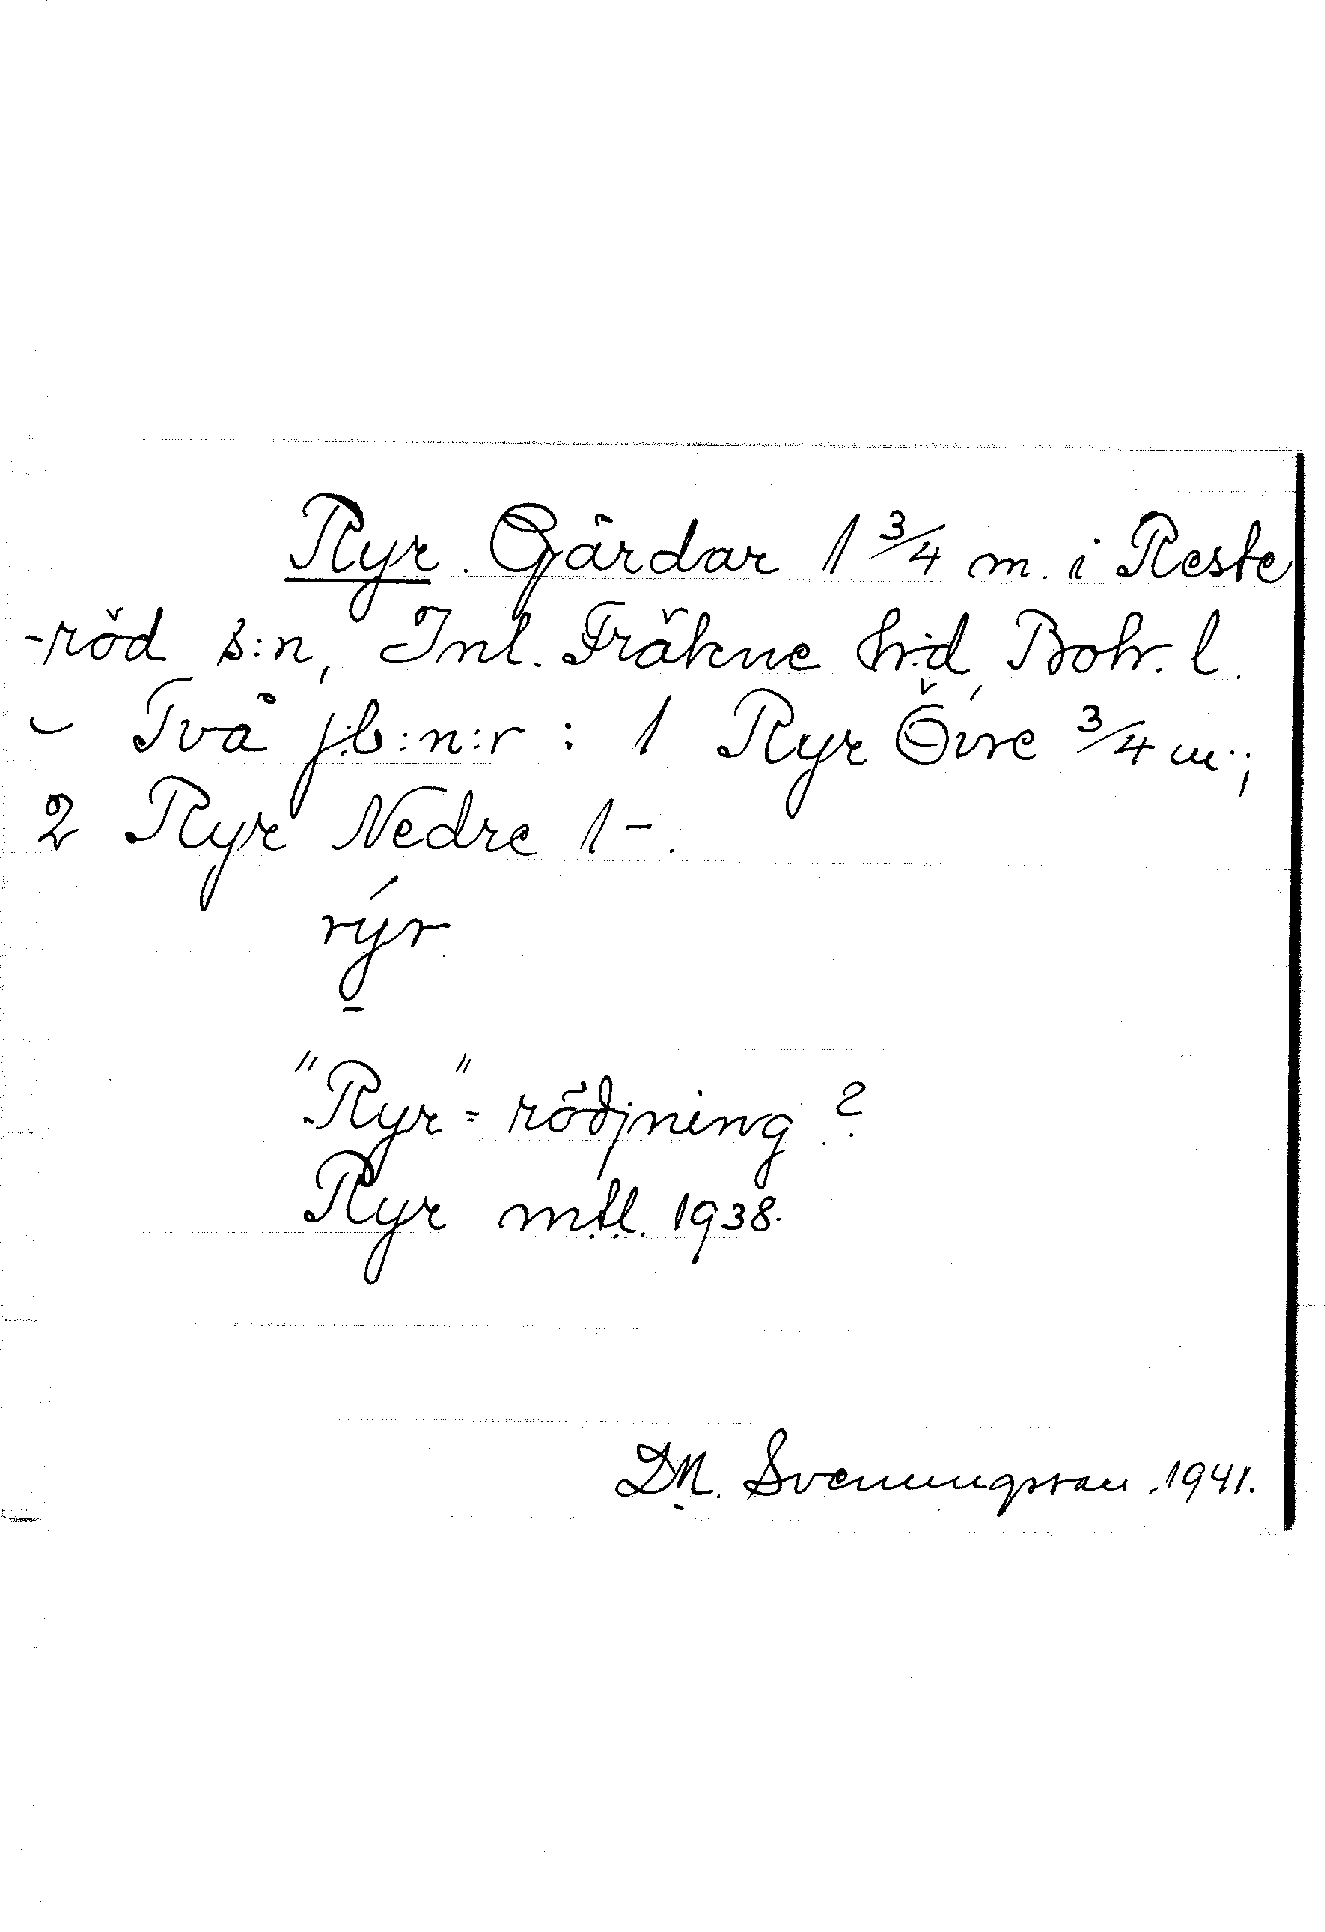 Ryr. Gårdar 1 3/4 m. i Reste
-röd s:n, Inl. Fräkne hrd, Boh. l.
- Två j:b:n:r : 1 Ryr Övre 3/4 m.;
2 Ryr Nedre 1 -.
rýr
"Ryr" = rödjning ?
Ryr mtl. 1938.
D.N. Svenungsson. 1941.